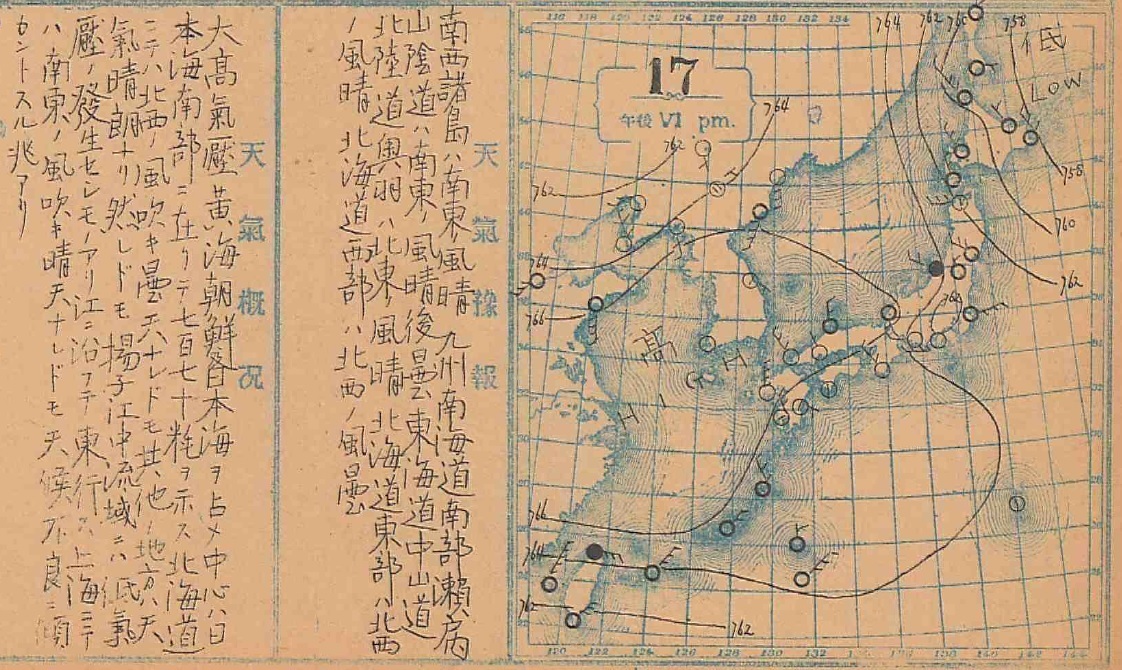 天氣豫報
南西諸島ハ南東ノ風晴 九州南海道南部瀨戸内
山陰道ハ南東ノ風晴後曇 東海道中山道
北陸道奥羽ハ北東ノ風晴 北海道東部ハ北西
ノ風晴 北海道西部ハ北西ノ風曇
天氣概況
大高氣壓黃海朝鮮日本海ヲ占メ中心ハ日
本海南部ニ在リテ七百七十粍ヲ示ス北海道
ニテハ北西ノ風吹キ曇天ナレドモ其他ノ地方ハ天
氣晴朗ナリ然レドモ揚子江中流域ニハ低氣
壓ノ發生セシモノアリ江ニ沿フテ東行ス上海ニテ
ハ南東ノ風吹キ晴天ナレドモ天候不良ニ傾
カントスル兆アリ
17
午後 VI pm.
116 118 120 122 124 126 128 130 132 134
764 762 760 758
低
LOW
764
762
762
758
760
762
764
766
高
HIGH
766
764
762
762
120 122 124 126 128 130 132 134 136 138 140 142 144